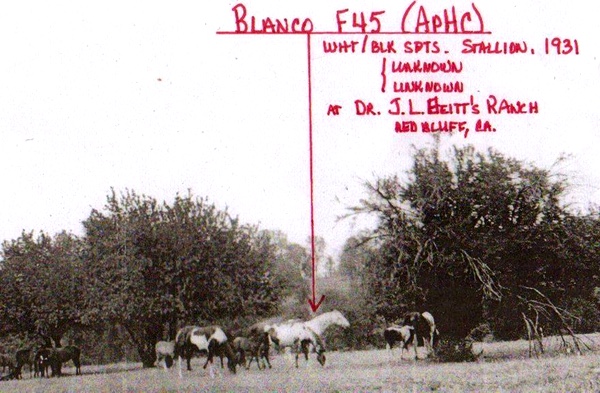 BLANCO F45 (APHC)
WHT/BLK SPTS. STALLION, 1931
UNKNOWN
UNKNOWN
AT DR. J.L. RANCH
RED BLUFF, CA.